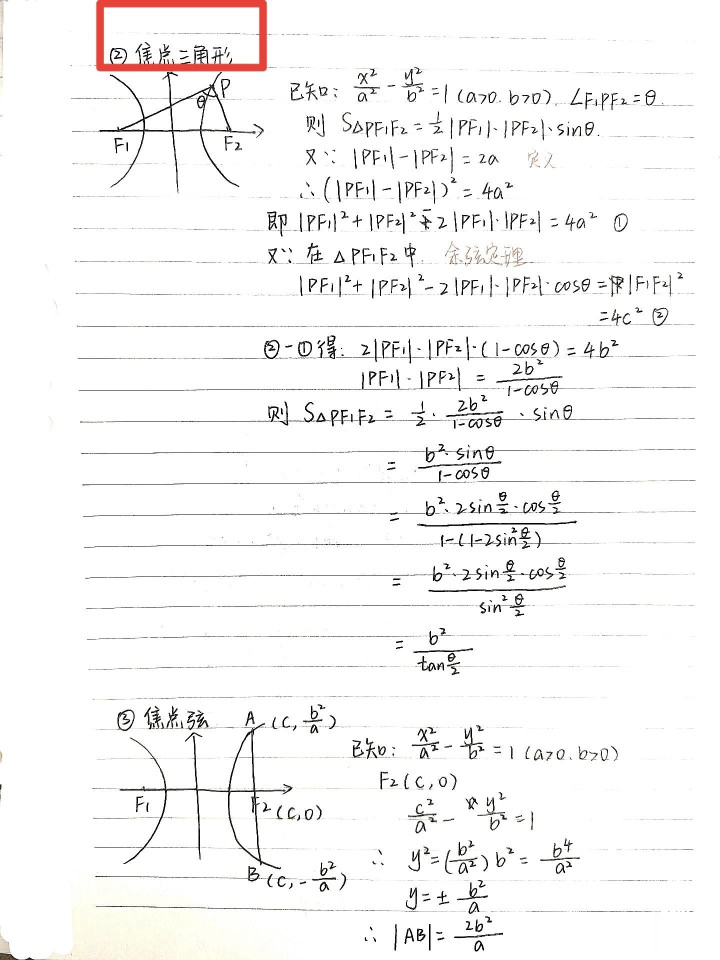 ② 焦点三角形
P
θ
F1 F2
已知: x²/a² - y²/b² = 1 (a>0. b>0) ∠F1PF2 = θ.
则 S△PF1F2 = 1/2 |PF1|·|PF2|·sinθ.
又∵ |PF1| - |PF2| = 2a 定义
∴ (|PF1| - |PF2|)² = 4a²
即 |PF1|² + |PF2|² - 2|PF1|·|PF2| = 4a² ①
又∵ 在 △PF1F2 中. 余弦定理
|PF1|² + |PF2|² - 2|PF1|·|PF2|·cosθ = |F1F2|²
= 4c² ②
② - ① 得: 2|PF1|·|PF2|·(1-cosθ) = 4b²
|PF1|·|PF2| = 2b²/(1-cosθ)
则 S△PF1F2 = 1/2 · 2b²/(1-cosθ) · sinθ
= b²·sinθ/(1-cosθ)
= b²·2sin θ/2·cos θ/2 / (1-(1-2sin² θ/2))
= b²·2sin θ/2·cos θ/2 / sin² θ/2
= b² / tan θ/2
③ 焦点弦
A (c, b²/a)
F1 F2 (c,0)
B (c, -b²/a)
已知: x²/a² - y²/b² = 1 (a>0. b>0)
F2 (c,0)
c²/a² - y²/b² = 1
∴ y² = (b²/a²) b² = b⁴/a²
y = ± b²/a
∴ |AB| = 2b²/a